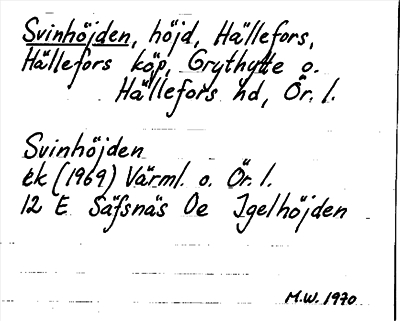 Svinhöjden, höjd, Hällefors,
Hällefors köp, Grythytte o.
Hällefors hd, Ör. l.
Svinhöjden
Ek (1969) Värml. o. Ör. l.
12 E Säfsnäs 0e Igelhöjden
M.W. 1970